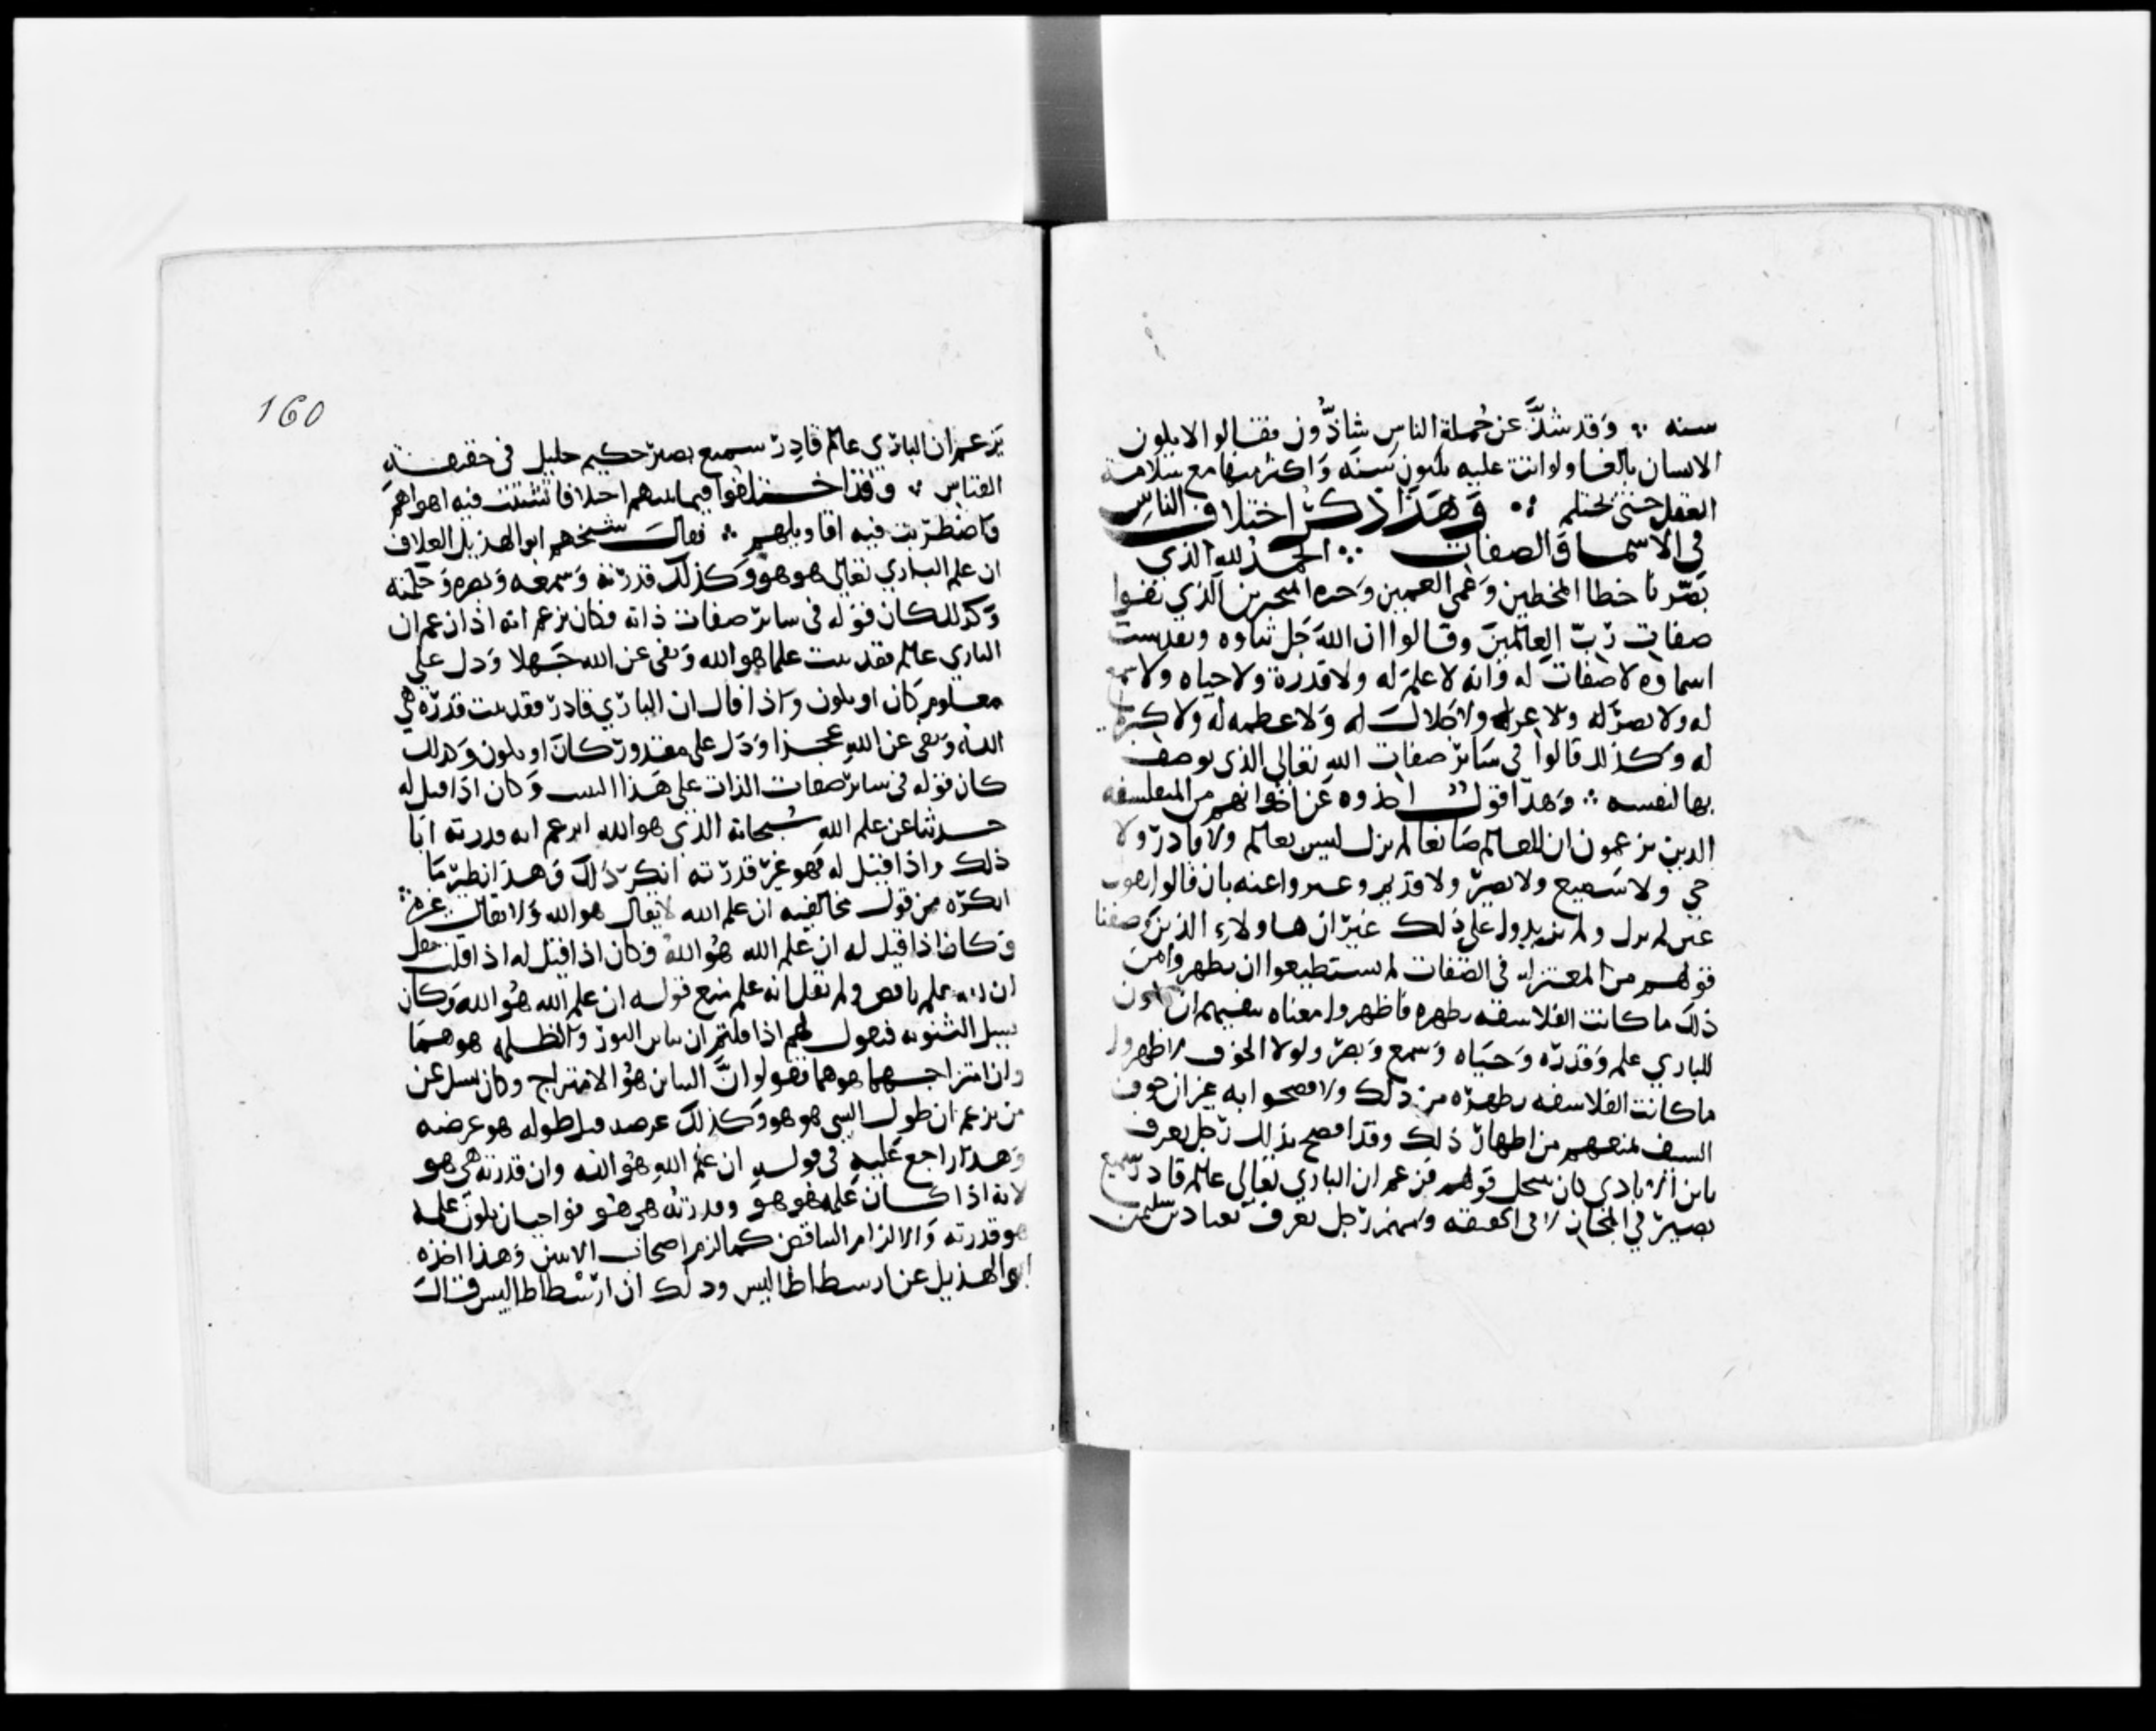 سنه ؞ وَقد شذَّ عن جُملة الناسِ شاذُّون فقالوا لا يكون
الانسان بالغا ولو اتت عليه ثلثون سَنَه وَاكثر منها مع سلامة
العقل حتى يحتلم ؞ وَهَذا ذكر اختلاف الناسِ
في الاسما وَالصفات ؞ الحمد لله الذي
بَصّرنا خطا المخطين وَعَمى العميين وَحيره المتحيرين الذي نفوا
صفات ربّ العالمين وقالوا ان اللهَ جَل ثناوه وتقدست
اسماوه لا صفات له وَانه لا علمَ له ولا قدرة ولا حياه ولا سمع
له ولا بصر له ولا عز له ولا جلالَ له وَلا عظمه له ولا كبريا
له وكذلك قالوا في سَائر صفات الله تعالى الذي يوصف
بها لنفسه ؞ وَهذا قول اخذوه عَن اخوانهم من المتفلسفه
الدين يزعمون ان للعالم صَانعا لم يزل ليس بعالم ولا قادر ولا
حي ولا سَميع ولا بصير ولا قديم وعبروا عنه بان قالوا نقول
عين لم يزل ولم يزيدوا على ذلك غير ان هاولاء الذين وَصفنا
قولهم من المعتزله في الصفات لم يستطيعوا ان يظهروا من
ذلك ما كانت الفلاسفه تظهره فاظهروا معناه بنفيهم ان يكون
للباري علم وَقدره وَحيَاه وَسمع وَبصر ولولا الخوف لاظهروا
ما كانت الفلاسفه تظهره من ذلك ولافصحوا به غير ان خوف
السيف يمنعهم من اظهار ذلك وقد افصح بذلك رَجل يعرف
بابن الايادي كان ينتحل قولهم فزعم ان الباري تعالى عالم قادر سميع
بصير في المجاز لا في الحقيقه ومنهم رَجل يعرف بعباد بن سليمن
يَزعم ان الباري عالم قادِر سميع بصير حكيم جليل في حقيقة
القياس ؞ وَقد اختلفوا فيما بينهم اختلافا تشتتت فيه اهواهم
وَاضطربت فيه اقاويلهم ؞ فقالَ شيخهم ابو الهذيل العلاف
ان علم الباري تعالى هو هو وَكذلك قدرته وَسمعه وَبصره وَحكمته
وَكذلك كان قوله في ساير صفات ذاته وكان يزعم انه اذا زعم ان
الباري عالم فقد ثبت علما هو الله وَنفى عن الله جَهلا وَدل على
معلوم كان او يكون وَاذا قال ان الباري قادر فقد ثبت قدره هي
الله وَنفى عن اللهِ عجزا وَدَل على مقدور كانَ او يكون وكذلك
كان قوله في سائر صفات الذات على هَذا التثبيت وَكان اذا قيل له
حدثنا عن علم الله سُبحانه الذي هو الله اتزعم انه قدرته ابا
ذلك واذا قيل له فَهو غير قدرته انكر ذلك وَهذا نظير مَا
انكره من قول مخالفيه ان علم الله لا يقال هو الله وَلا يقال غيره ؞
وَكان اذا قيل له ان عَلم الله هُو اللهُ وكان اذا قيل له اذا قلت
ان علم ناقض ولم يقل انه علم مع قوله ان علم الله هُو الله وَكان
يسل الثنويه فيقول لهم اذا قلتم ان تباين النور وَالظلمه هو همَا
وان امتزاجهما هو هما فقولوا انَّ التباين هُو الامتزاج وكان يسل عن
من يزعم ان طول الشي هو هو وَكذلك عرضه هل طوله هو عرضه
وَهذا راجع عَليه في قوله ان علم اللهِ هُو الله وان قدرته هي هو
لانه اذا كان عَلمه هو هو وقدرته هي هُو فواجب ان يكون علمه
هو قدرته وَالا لزام التناقض كما لزم اصحاب الاثنين وَهذا اخذه
ابو الهذيل عن ارسطاطاليس وذلك ان ارسْطاطاليس قالَ
160